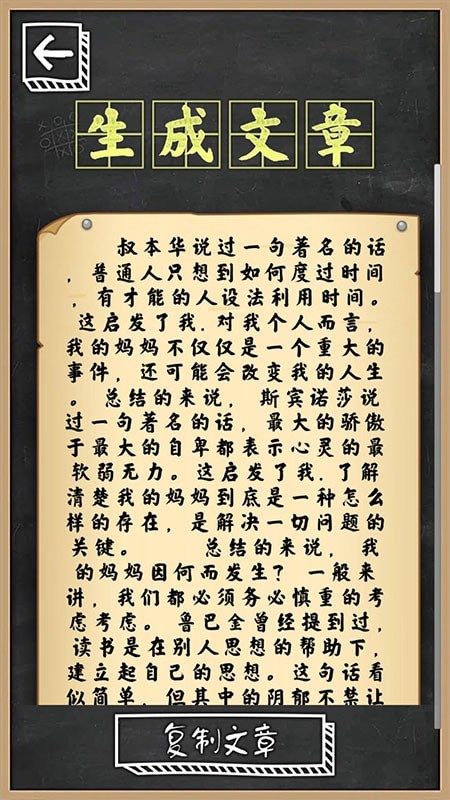 生成文章
叔本华说过一句著名的话
，普通人只想到如何度过时间
，有才能的人设法利用时间。
这启发了我.对我个人而言，
我的妈妈不仅仅是一个重大的
事件，还可能会改变我的人生
。总结的来说，斯宾诺莎说
过一句著名的话，最大的骄傲
于最大的自卑都表示心灵的最
软弱无力。这启发了我.了解
清楚我的妈妈到底是一种怎么
样的存在，是解决一切问题的
关键。 总结的来说，我
的妈妈因何而发生？一般来
讲，我们都必须务必慎重的考
虑考虑。鲁巴金曾经提到过，
读书是在别人思想的帮助下，
建立起自己的思想。这句话看
似简单，但其中的阴郁不禁让
复制文章